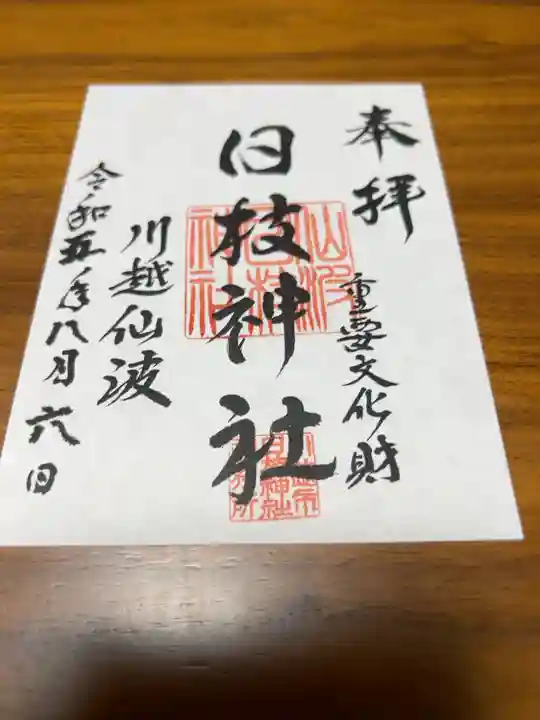 奉拝
重要文化財
日枝神社
川越仙波
令和五年八月六日